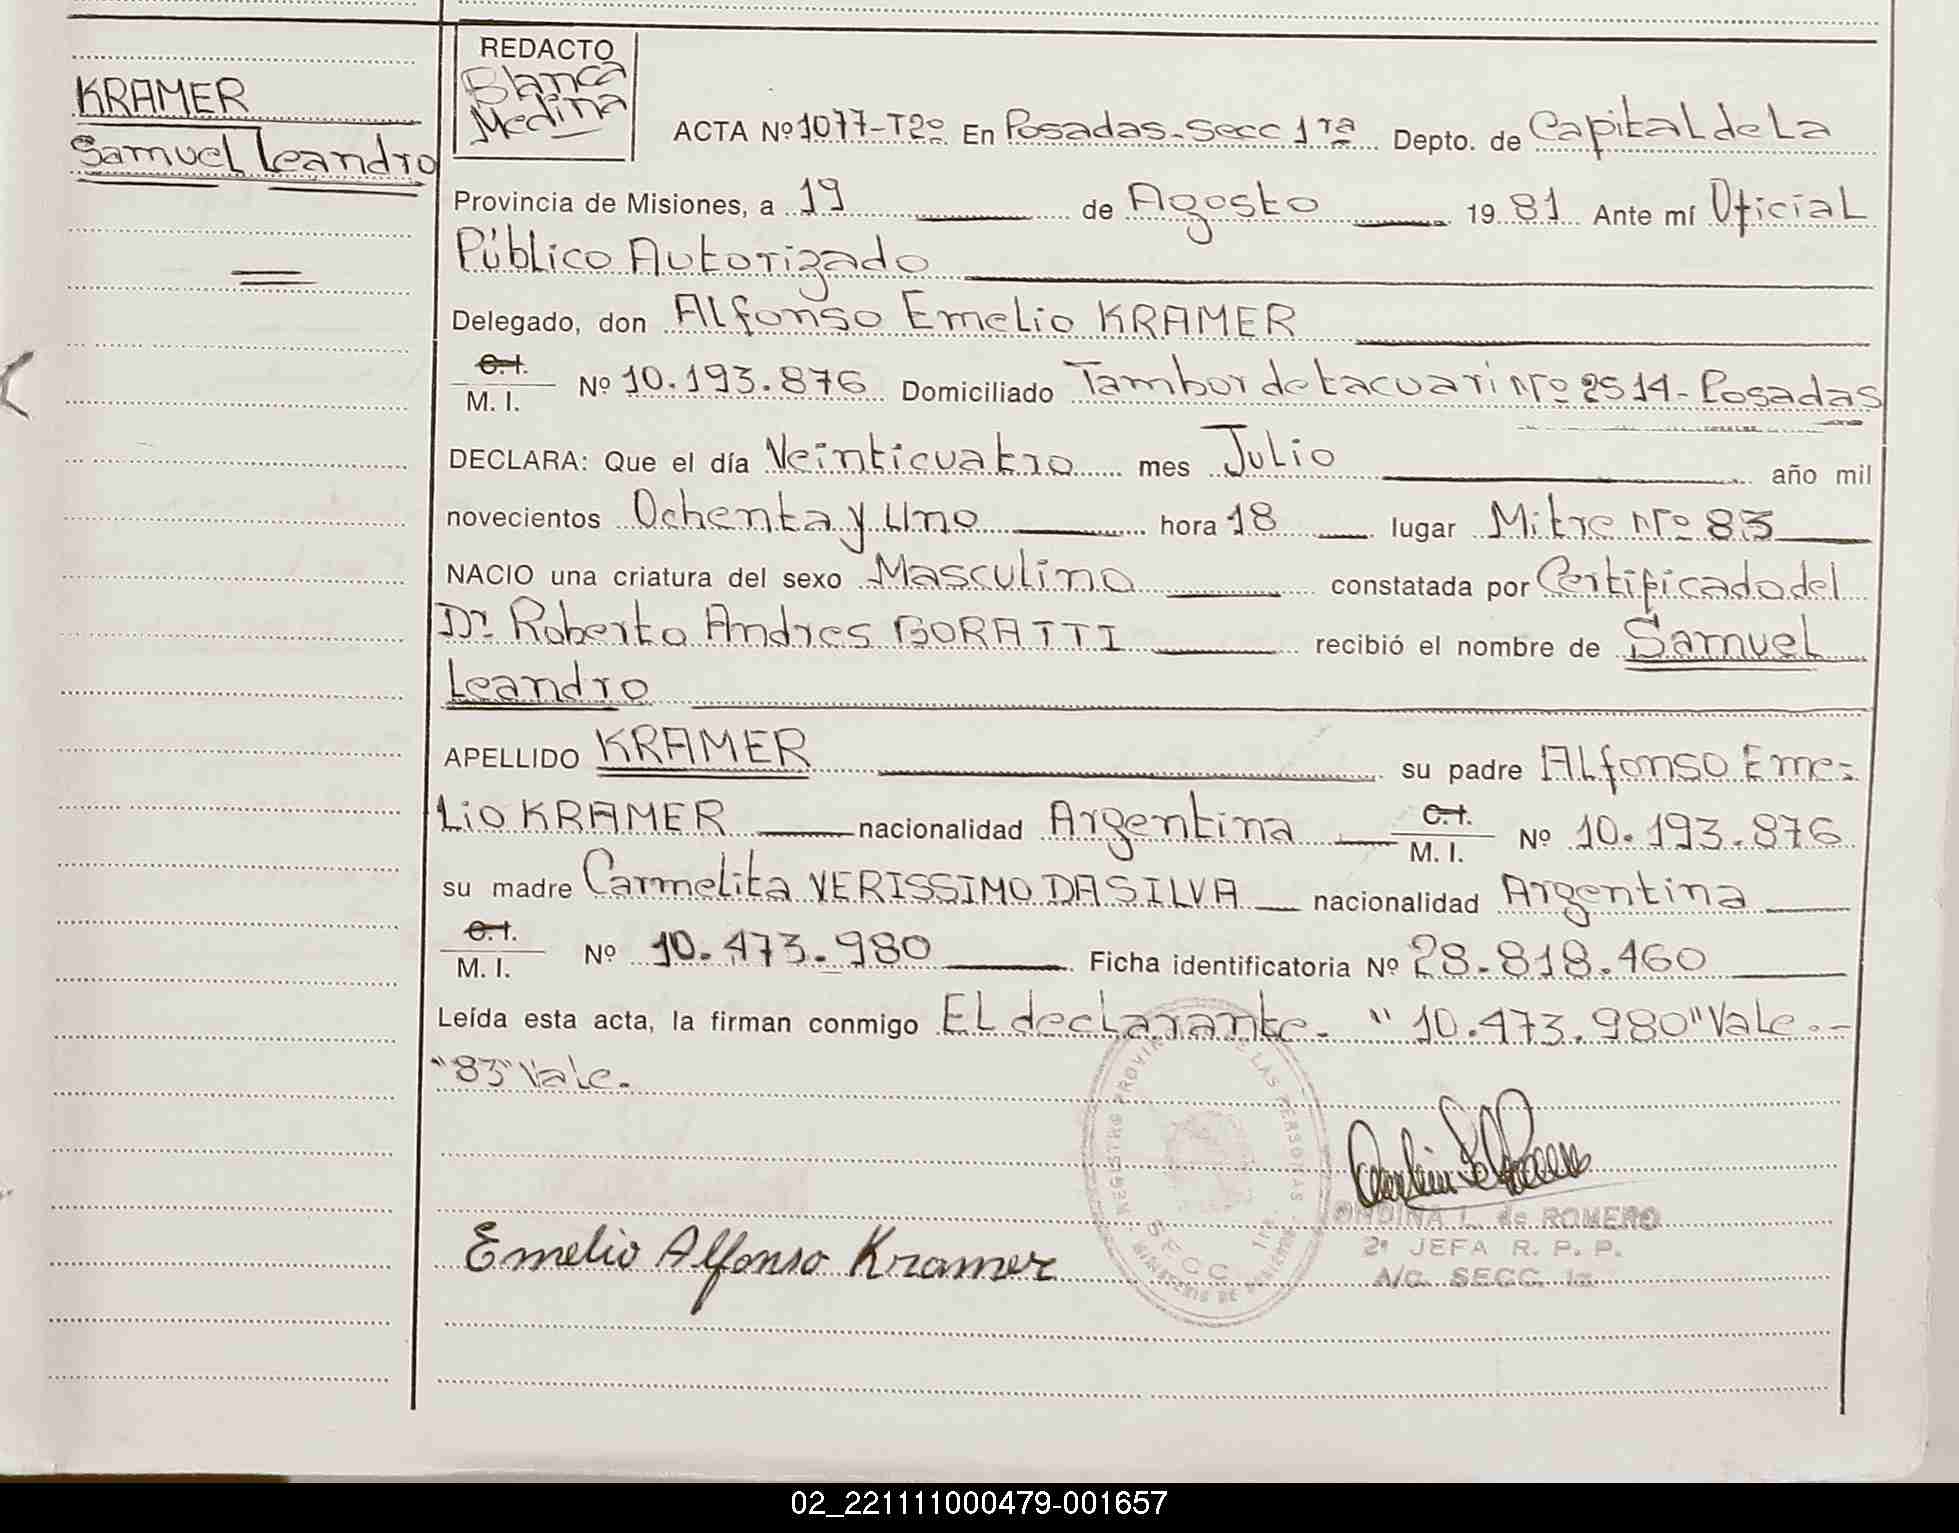 KRAMER
Samuel Leandro
REDACTO
Blanca
Medina
ACTA Nº 1077-T2º En Posadas-Secc 1ra Depto. de Capital de La
Provincia de Misiones, a 19 de Agosto 1981 Ante mí Oficial
Público Autorizado
Delegado, don Alfonso Emelio KRAMER
C.I.
M. I. Nº 10.193.876 Domiciliado Tambor de tacuari Nº 2514- Posadas
DECLARA: Que el día Veinticuatro mes Julio año mil
novecientos Ochenta y Uno hora 18 lugar Mitre Nº 83
NACIO una criatura del sexo Masculino constatada por Certificado del
Dr. Roberto Andres GORATTI recibió el nombre de Samuel
Leandro
APELLIDO KRAMER su padre Alfonso Eme-
Lio KRAMER nacionalidad Argentina C.I.
M. I. Nº 10.193.876
su madre Carmelita VERISSIMO DA SILVA nacionalidad Argentina
C.I.
M. I. Nº 10.473.980 Ficha identificatoria Nº 28.818.460
Leída esta acta, la firman conmigo EL declarante. "10.473.980" Vale.-
"83" Vale.
REGISTRO PROVIN DE LAS PERSONAS
SECC 1ra.
MINISTERIO DE GOBIERNO
ONDINA L. de ROMERO
2ª JEFA R. P. P.
A/C. SECC. 1a.
Emelio Alfonso Kramer
02_221111000479-001657